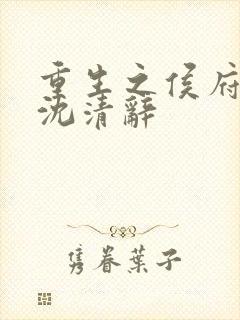 重生之侯府
沈清辭
隽眷葉子